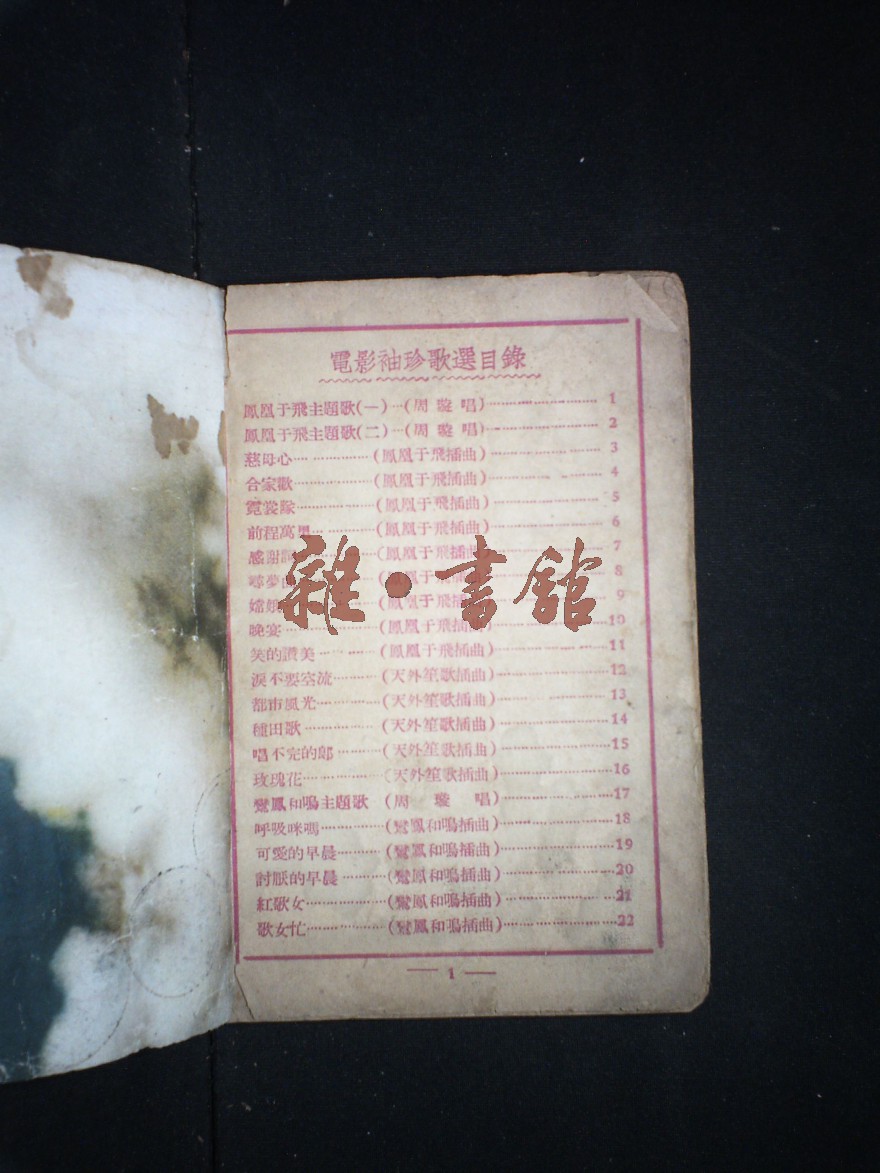 電影袖珍歌選目錄
鳳凰于飛主題歌(一)…(周璇唱)……………………1
鳳凰于飛主題歌(二)…(周璇唱)……………………2
慈母心……………(鳳凰于飛插曲)……………………3
合家歡……………(鳳凰于飛插曲)……………………4
霓裳隊……………(鳳凰于飛插曲)……………………5
前程萬里…………(鳳凰于飛插曲)……………………6
感謝…………(鳳凰于飛插曲)……………………7
尋夢…………(鳳凰于飛插曲)……………………8
嫦娥…………(鳳凰于飛插曲)……………………9
晚宴……………(鳳凰于飛插曲)……………………10
笑的讚美…………(鳳凰于飛插曲)……………………11
淚不要空流………(天外笙歌插曲)……………………12
都市風光…………(天外笙歌插曲)……………………13
種田歌……………(天外笙歌插曲)……………………14
唱不完的郎………(天外笙歌插曲)……………………15
玫瑰花……………(天外笙歌插曲)……………………16
鸞鳳和鳴主題歌 (周璇唱)……………………17
呼吸咪嗎…………(鸞鳳和鳴插曲)……………………18
可愛的早晨………(鸞鳳和鳴插曲)……………………19
討厭的早晨………(鸞鳳和鳴插曲)……………………20
紅歌女……………(鸞鳳和鳴插曲)……………………21
歌女忙……………(鸞鳳和鳴插曲)……………………22
— 1 —
雜·書館